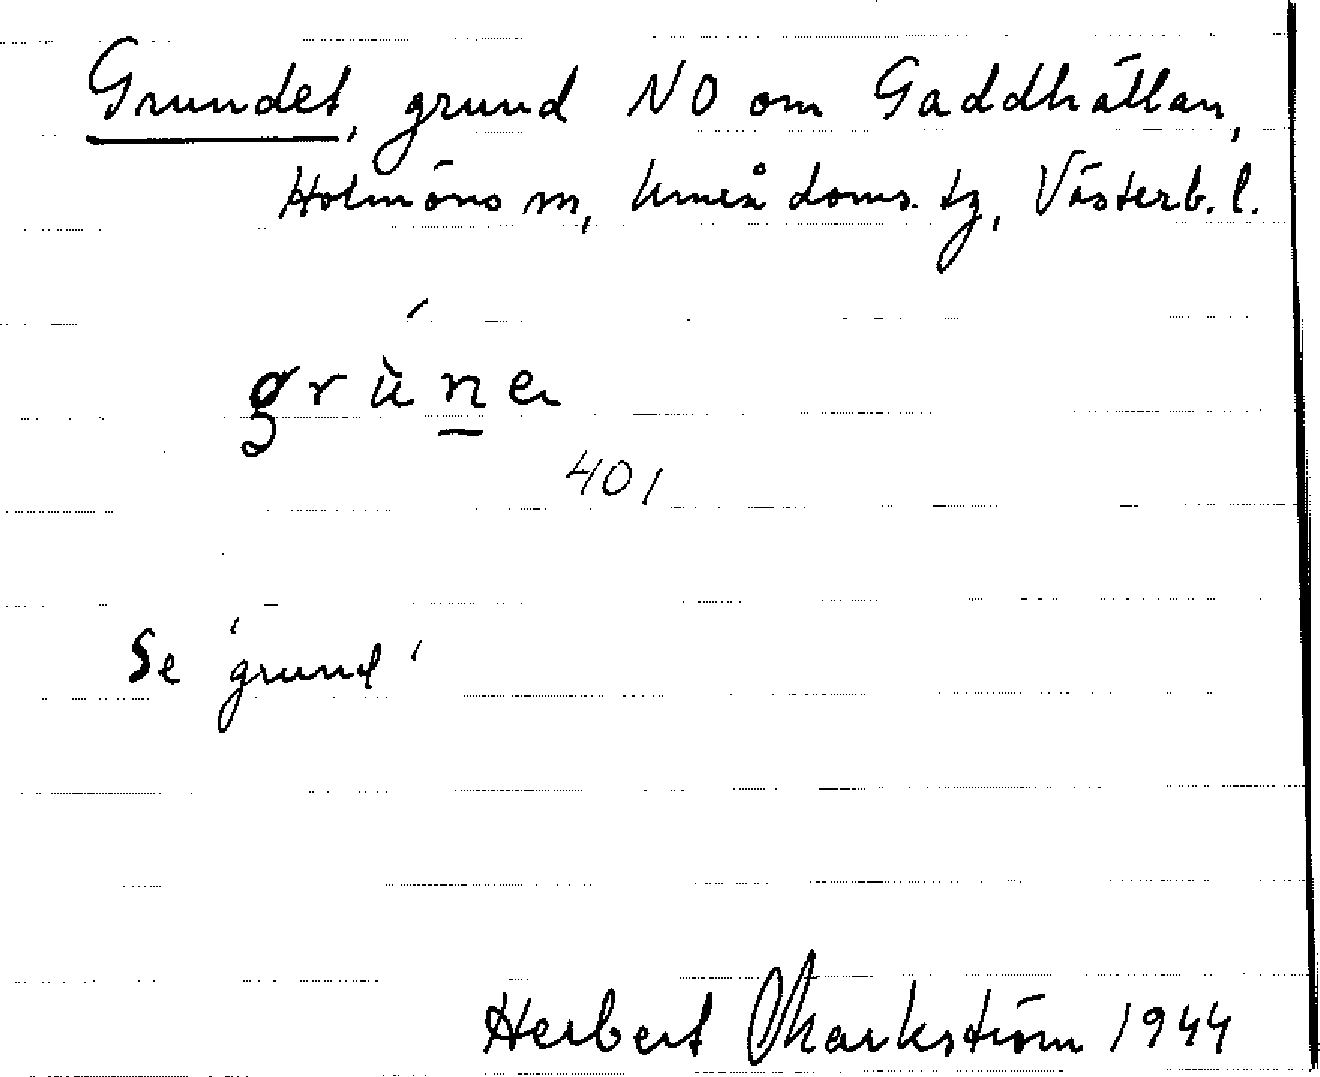 Grundet, grund NO om Gaddhällan,
Holmöns sn, Umeå doms. tg, Västerb. l.
grùne
401
Se 'grund'
Herbert Markström 1944